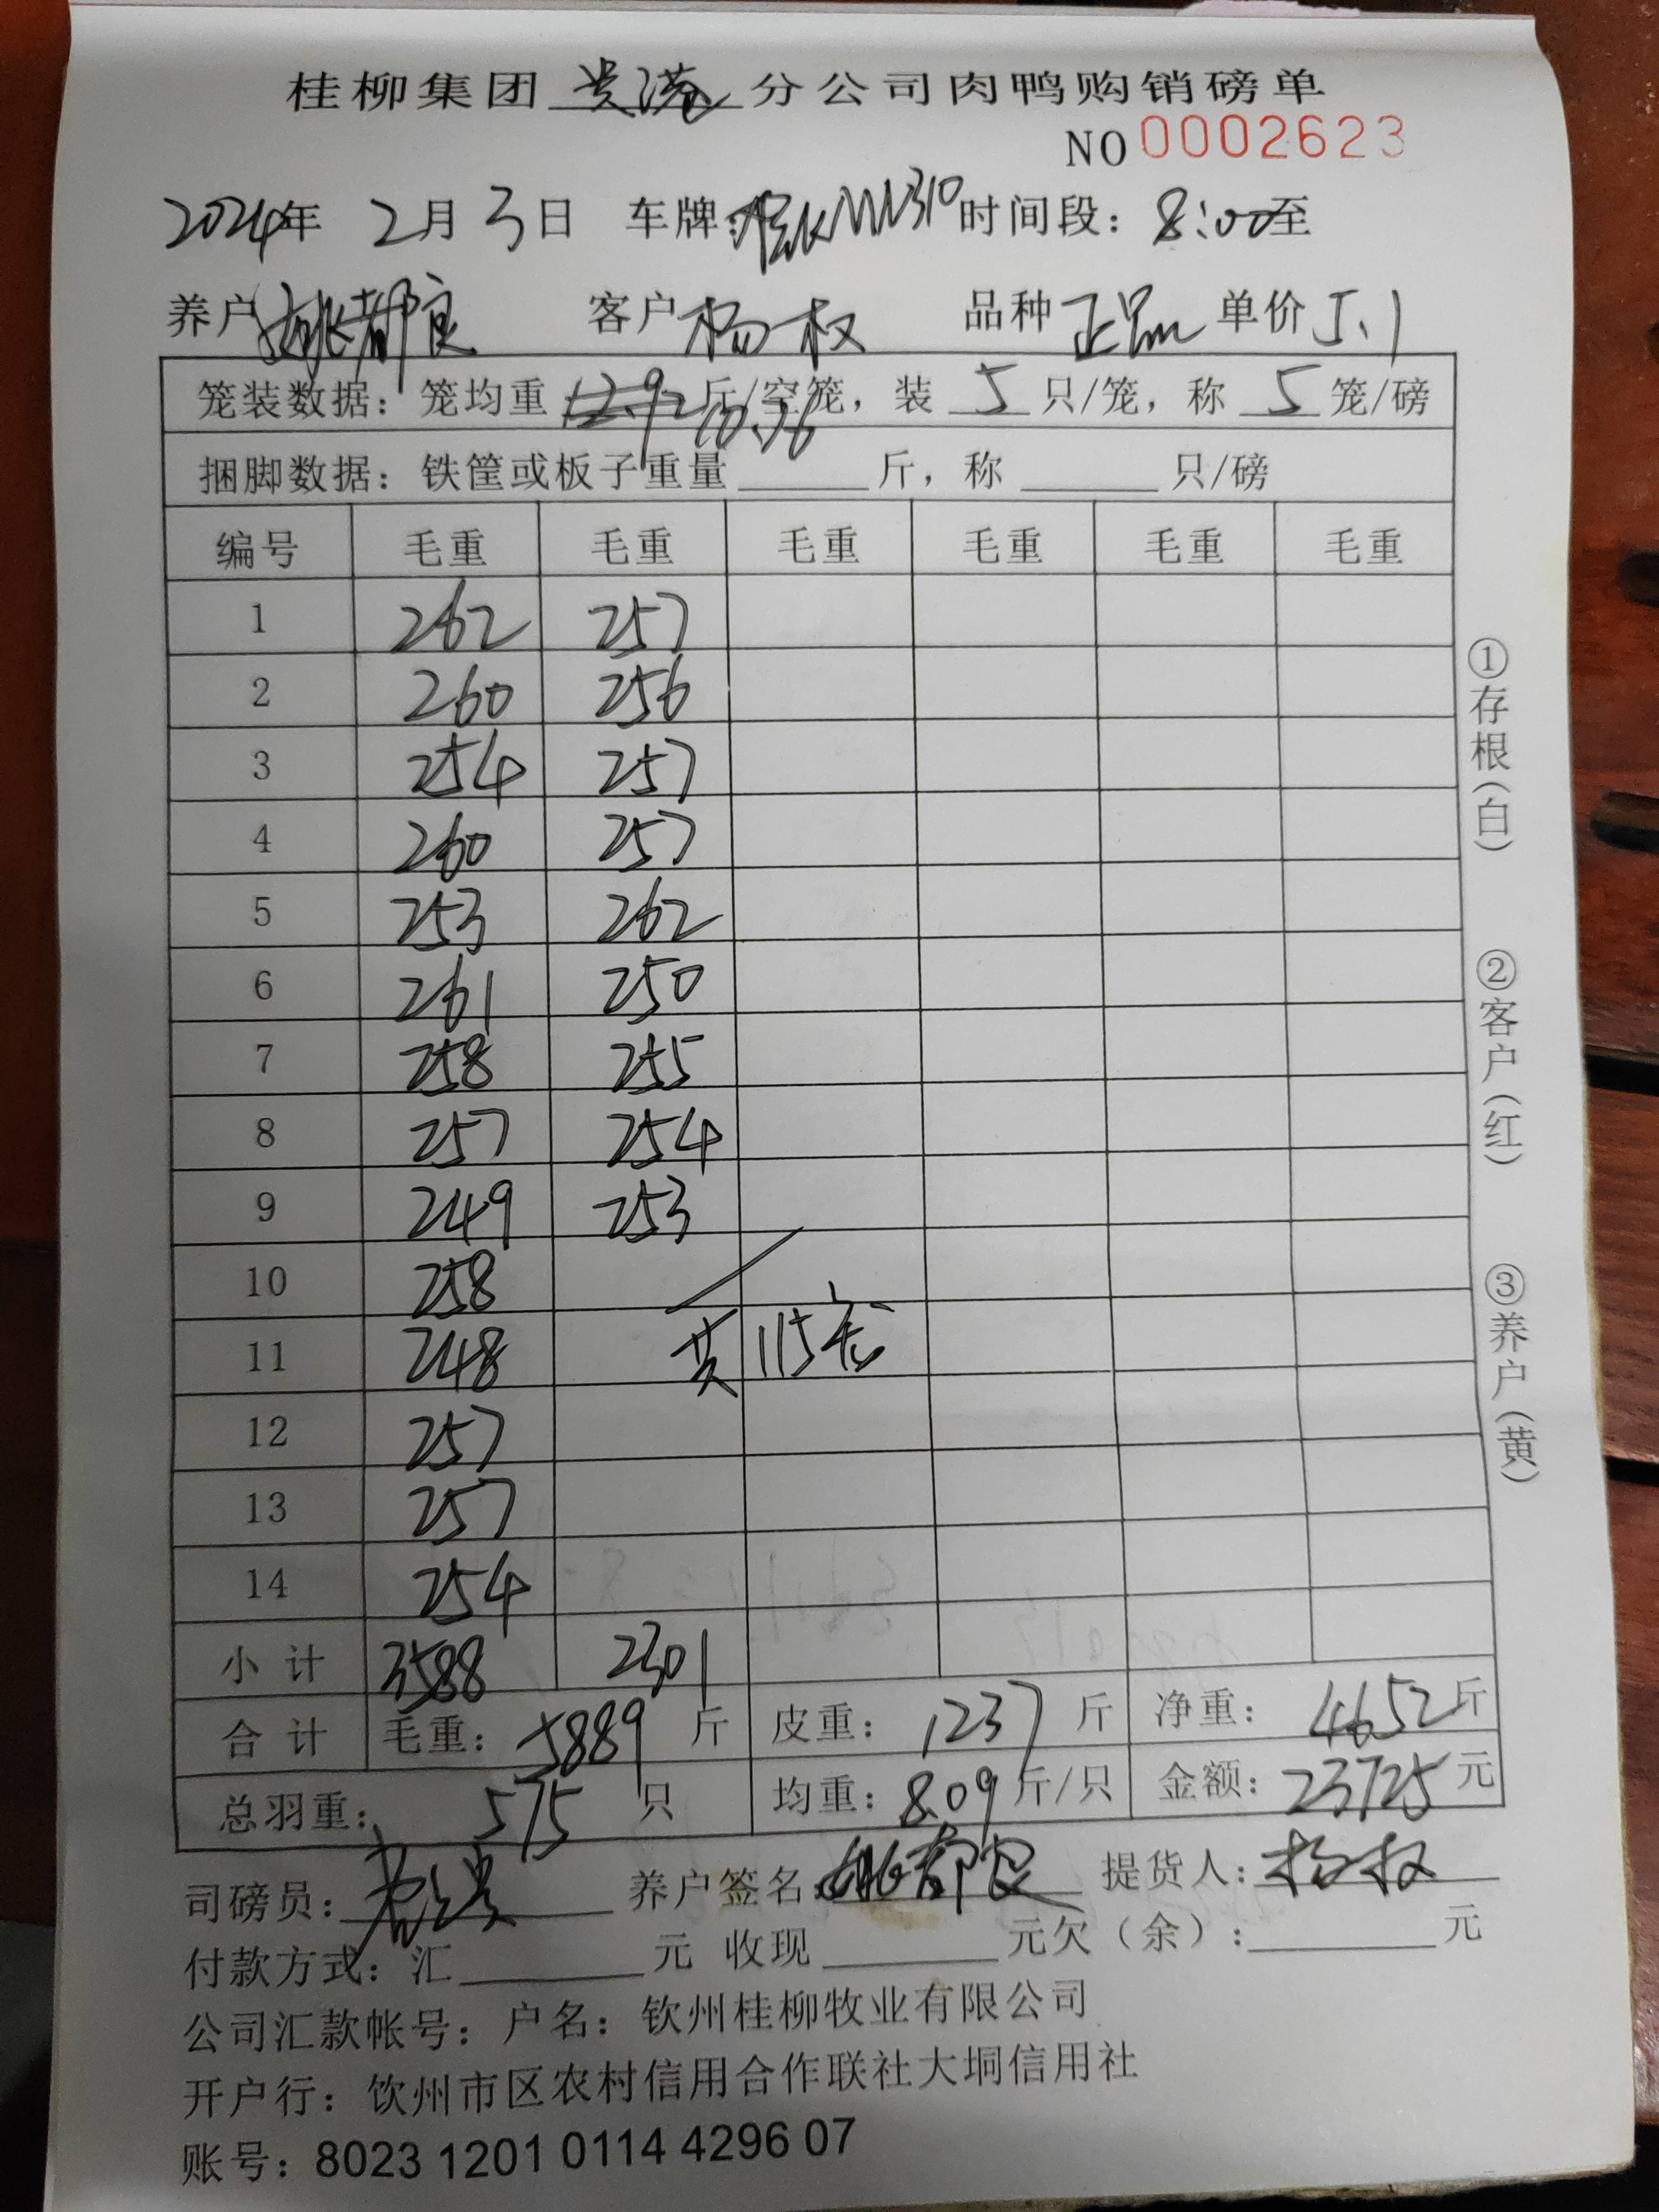 桂柳集团 贵港 分公司肉鸭购销磅单
NO 0002623
2024年 2月 3日 车牌: 310 时间段: 8:00至
养户 姚都良 客户 杨权 品种 正品 单价 5.1
笼装数据: 笼均重 12.92 10.76 斤/空笼, 装 5 只/笼, 称 5 笼/磅
捆脚数据: 铁筐或板子重量 斤, 称 只/磅
编号 毛重 毛重 毛重 毛重 毛重 毛重
1 262 257
2 260 256
3 254 257
4 260 257
5 253 262
6 261 250
7 258 255
8 257 254
9 249 253
10 258
11 248 共115笼
12 257
13 257
14 254
小计 3588 2301
合计 毛重: 5889 斤 皮重: 1237 斤 净重: 4652 斤
总羽重: 575 只 均重: 8.09 斤/只 金额: 23725 元
司磅员: 养户签名: 姚都良 提货人: 杨权
付款方式: 汇 元 收现 元欠(余): 元
公司汇款帐号: 户名: 钦州桂柳牧业有限公司
开户行: 钦州市区农村信用合作联社大垌信用社
账号: 8023 1201 0114 4296 07
①存根(白) ②客户(红) ③养户(黄)